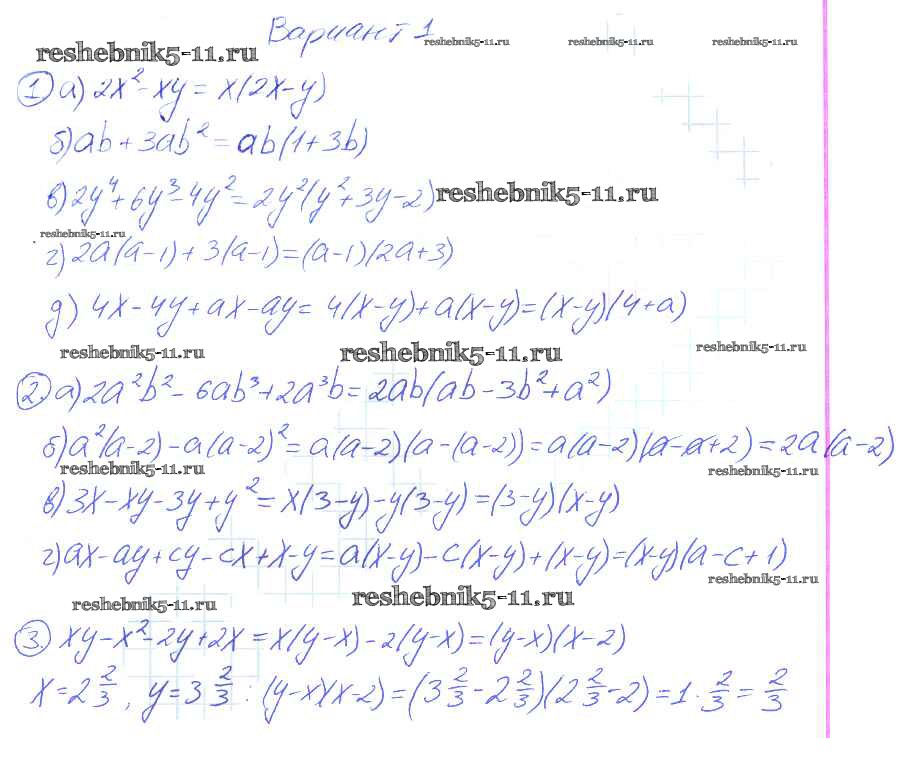 Вариант 1
reshebnik5-11.ru reshebnik5-11.ru reshebnik5-11.ru reshebnik5-11.ru
① а) 2x² - xy = x(2x-y)
б) ab + 3ab² = ab(1+3b)
в) 2y⁴ + 6y³ - 4y² = 2y²(y² + 3y - 2) reshebnik5-11.ru
reshebnik5-11.ru
г) 2a(a-1) + 3(a-1) = (a-1)(2a+3)
д) 4x - 4y + ax - ay = 4(x-y) + a(x-y) = (x-y)(4+a)
reshebnik5-11.ru reshebnik5-11.ru reshebnik5-11.ru
②. а) 2a²b² - 6ab³ + 2a³b = 2ab(ab - 3b² + a²)
б) a²(a-2) - a(a-2)² = a(a-2)(a-(a-2)) = a(a-2)(a-a+2) = 2a(a-2)
reshebnik5-11.ru reshebnik5-11.ru
в) 3x - xy - 3y + y² = x(3-y) - y(3-y) = (3-y)(x-y)
г) ax - ay + cy - cx + x - y = a(x-y) - c(x-y) + (x-y) = (x-y)(a-c+1)
reshebnik5-11.ru
reshebnik5-11.ru reshebnik5-11.ru
③. xy - x² - 2y + 2x = x(y-x) - 2(y-x) = (y-x)(x-2)
x = 2 2/3, y = 3 2/3 : (y-x)(x-2) = (3 2/3 - 2 2/3)(2 2/3 - 2) = 1 · 2/3 = 2/3